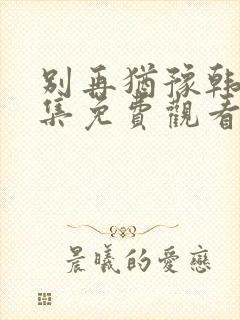 別再猶豫韩
集免費觀看
晨曦的愛戀